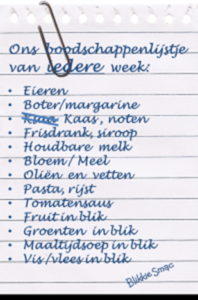 Ons boodschappenlijstje
van iedere week:
• Eieren
• Boter/margarine
• Kaas, noten
• Frisdrank, siroop
• Houdbare melk
• Bloem/Meel
• Oliën en vetten
• Pasta, rijst
• Tomatensaus
• Fruit in blik
• Groenten in blik
• Maaltijdsoep in blik
• Vis/vlees in blik